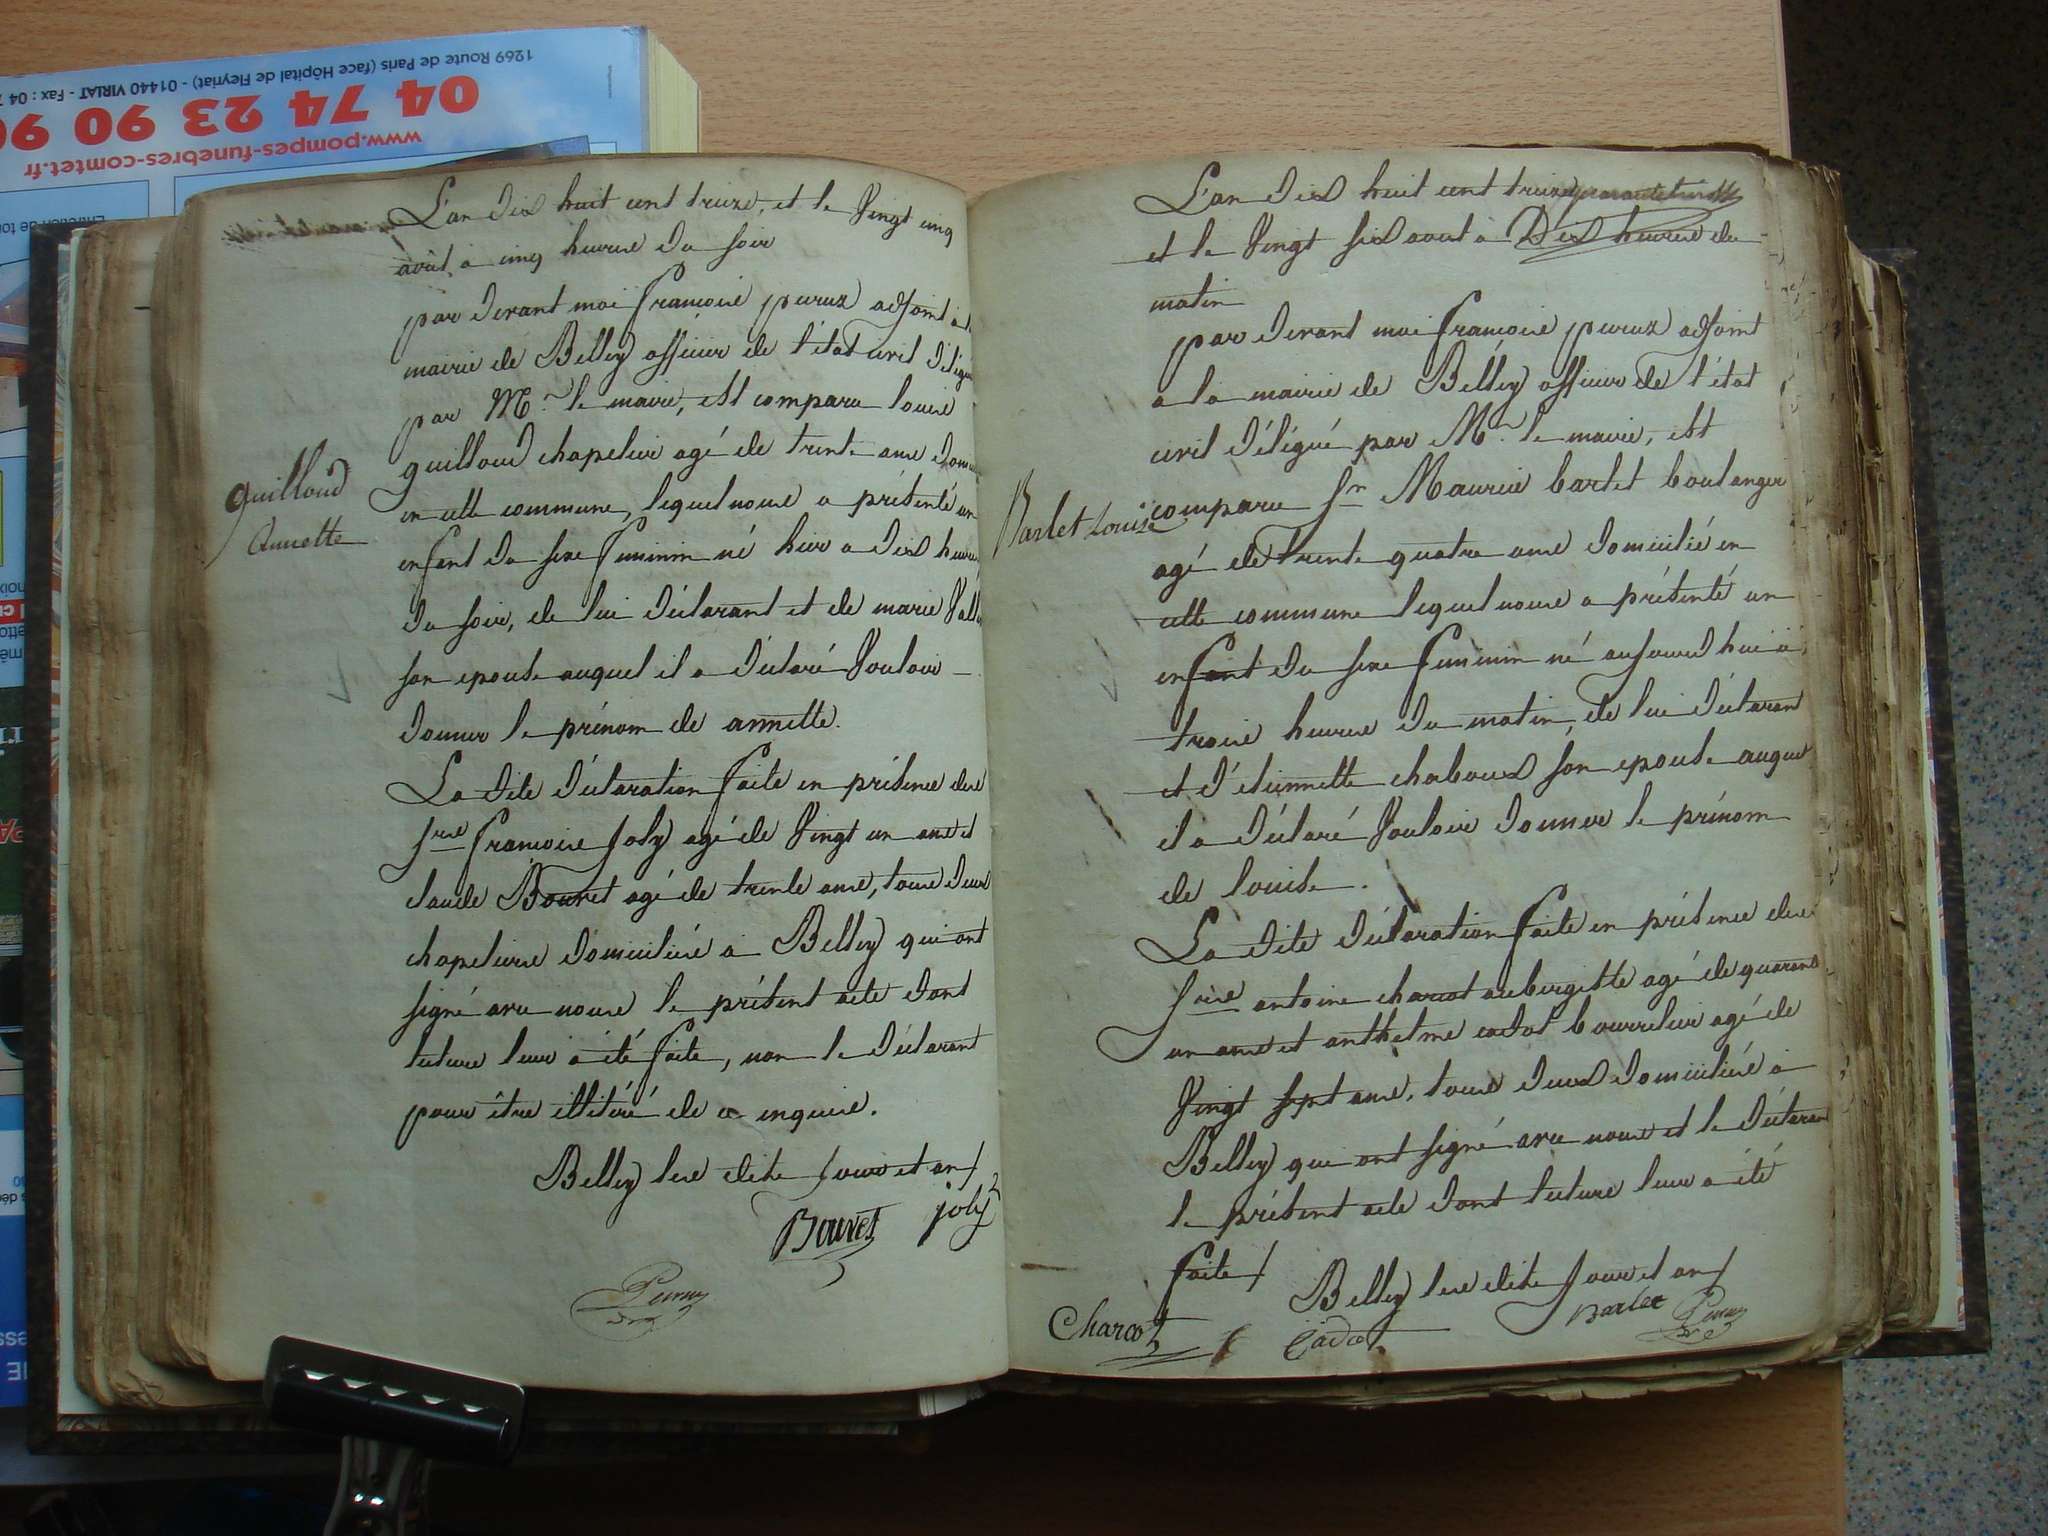 1269 Route de Paris (face Hôpital de Fleyriat) - 01440 VIRIAT - Fax : 04
04 74 23 90 90
www.pompes-funebres-comtet.fr
L'an dix huit cent treize, et le Vingt cinq
août à cinq heures du soir
par devant moi françois peruz adjoint à la
mairie de Belley officier de l'état civil délégué
par Mr. le maire, est comparu louis
guilloud chapelier agé de trente ans domi
en cette commune, lequel nous a présenté un
enfant du sexe feminin né hier a dix heures
du soir, de lui déclarant et de marie
son epouse auquel il a déclaré Vouloir
donner le prénom de annette.
La dite déclaration faite en présence des
srs françois joly agé de Vingt un ans et
claude Bouvet agé de trente ans, tous deux
chapeliers domiciliés à Belley qui ont
signé avec nous le présent acte dont
lecture leur a été faite, non le déclarant
pour être illitéré de ce enquis.
Belley les dits jour et an
Bouvet joly
Peruz
guilloud
Annette
L'an dix huit cent treize
et le Vingt six aout à Dix heures du
matin
par devant moi françois peruz adjoint
a la mairie de Belley officier de l'état
civil délégué par Mr. le maire, est
comparu sr Maurice barlet boulanger
agé de trente quatre ans domicilié en
cette commune lequel nous a présenté un
enfant du sexe feminin né aujourd'hui à
trois heures du matin, de lui déclarant
et d'étiennette chaboud son epouse auquel
il a déclaré Vouloir donner le prénom
de louise.
La dite déclaration faite en présence des
srs antoine charcot aubergiste agé de quarante
un ans et anthelme cadot bourrelier agé de
Vingt sept ans, tous deux domiciliés à
Belley qui ont signé avec nous et le déclarant
le présent acte dont lecture leur a été
faite
Belley les dits jour et an
Charcot Cadot barlet Peruz
Barlet Louise